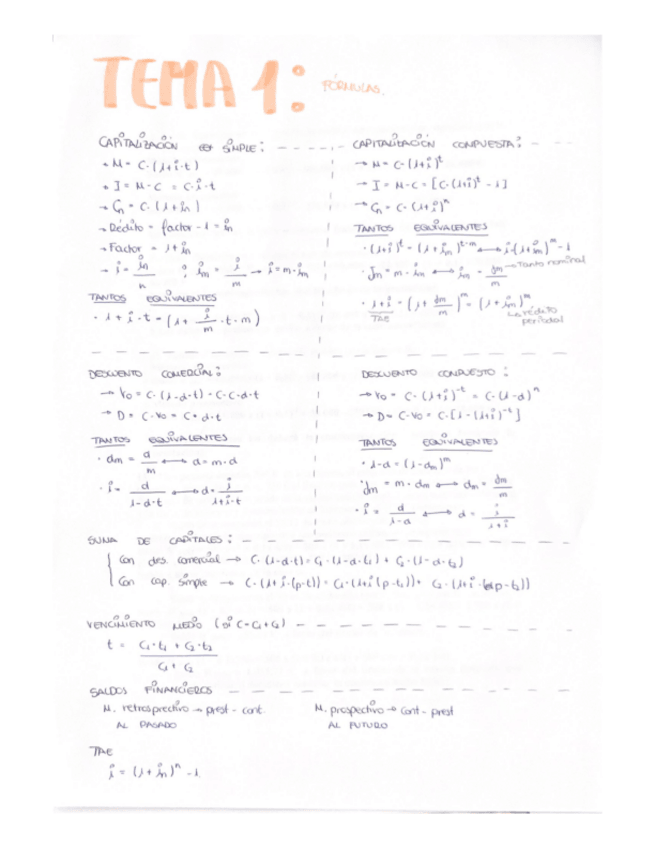 TEMA 1: FÓRMULAS.
CAPITALIZACIÓN SIMPLE:
→ M = C · (1+i·t)
→ I = M-C = C·i·t
→ Cn = C · (1+in)
→ Rédito = factor - 1 = in
→ Factor = 1+in
→ i = in/n ; im = i/m → i = m·im
TANTOS EQUIVALENTES
· 1 + i · t = (1 + i/m · t · m)
CAPITALIZACIÓN COMPUESTA:
→ M = C · (1+i)^t
→ I = M-C = [C · (1+i)^t - 1]
→ Cn = C · (1+i)^n
TANTOS EQUIVALENTES
· (1+i)^t = (1+im)^t·m ↔ i=(1+im)^m - 1
· Jm = m · im ↔ im = Jm/m → Tanto nominal
· 1+i = (1 + Jm/m)^m = (1 + im)^m
TAE
↳ rédito periodal
DESCUENTO COMERCIAL:
→ Vo = C · (1-d·t) = C - C·d·t
→ D = C - Vo = C · d·t
TANTOS EQUIVALENTES
· dm = d/m ↔ d = m·d
· i = d/1-d·t ↔ d = i/1+i·t
DESCUENTO COMPUESTO:
→ Vo = C · (1+i)^-t = C · (1-d)^n
→ D = C-Vo = C · [1 - (1+i)^-t]
TANTOS EQUIVALENTES
· 1-d = (1-dm)^m
· Jm = m · dm ↔ dm = Jm/m
· i = d/1-d ↔ d = i/1+i
SUMA DE CAPITALES:
Con des. comercial → C · (1-d·t) = C1 · (1-d·t1) + C2 · (1-d·t2)
Con cap. simple → C · (1+i·(p-t)) = C1·(1+i(p-t1)) + C2·(1+i·(p-t2))
VENCIMIENTO MEDIO (Si C=C1+C2)
t = C1·t1 + C2·t2 / C1 + C2
SALDOS FINANCIEROS
M. retrospectivo → prest - cont.
AL PASADO
M. prospectivo → cont - prest
AL FUTURO
TAE
i = (1+in)^n - 1